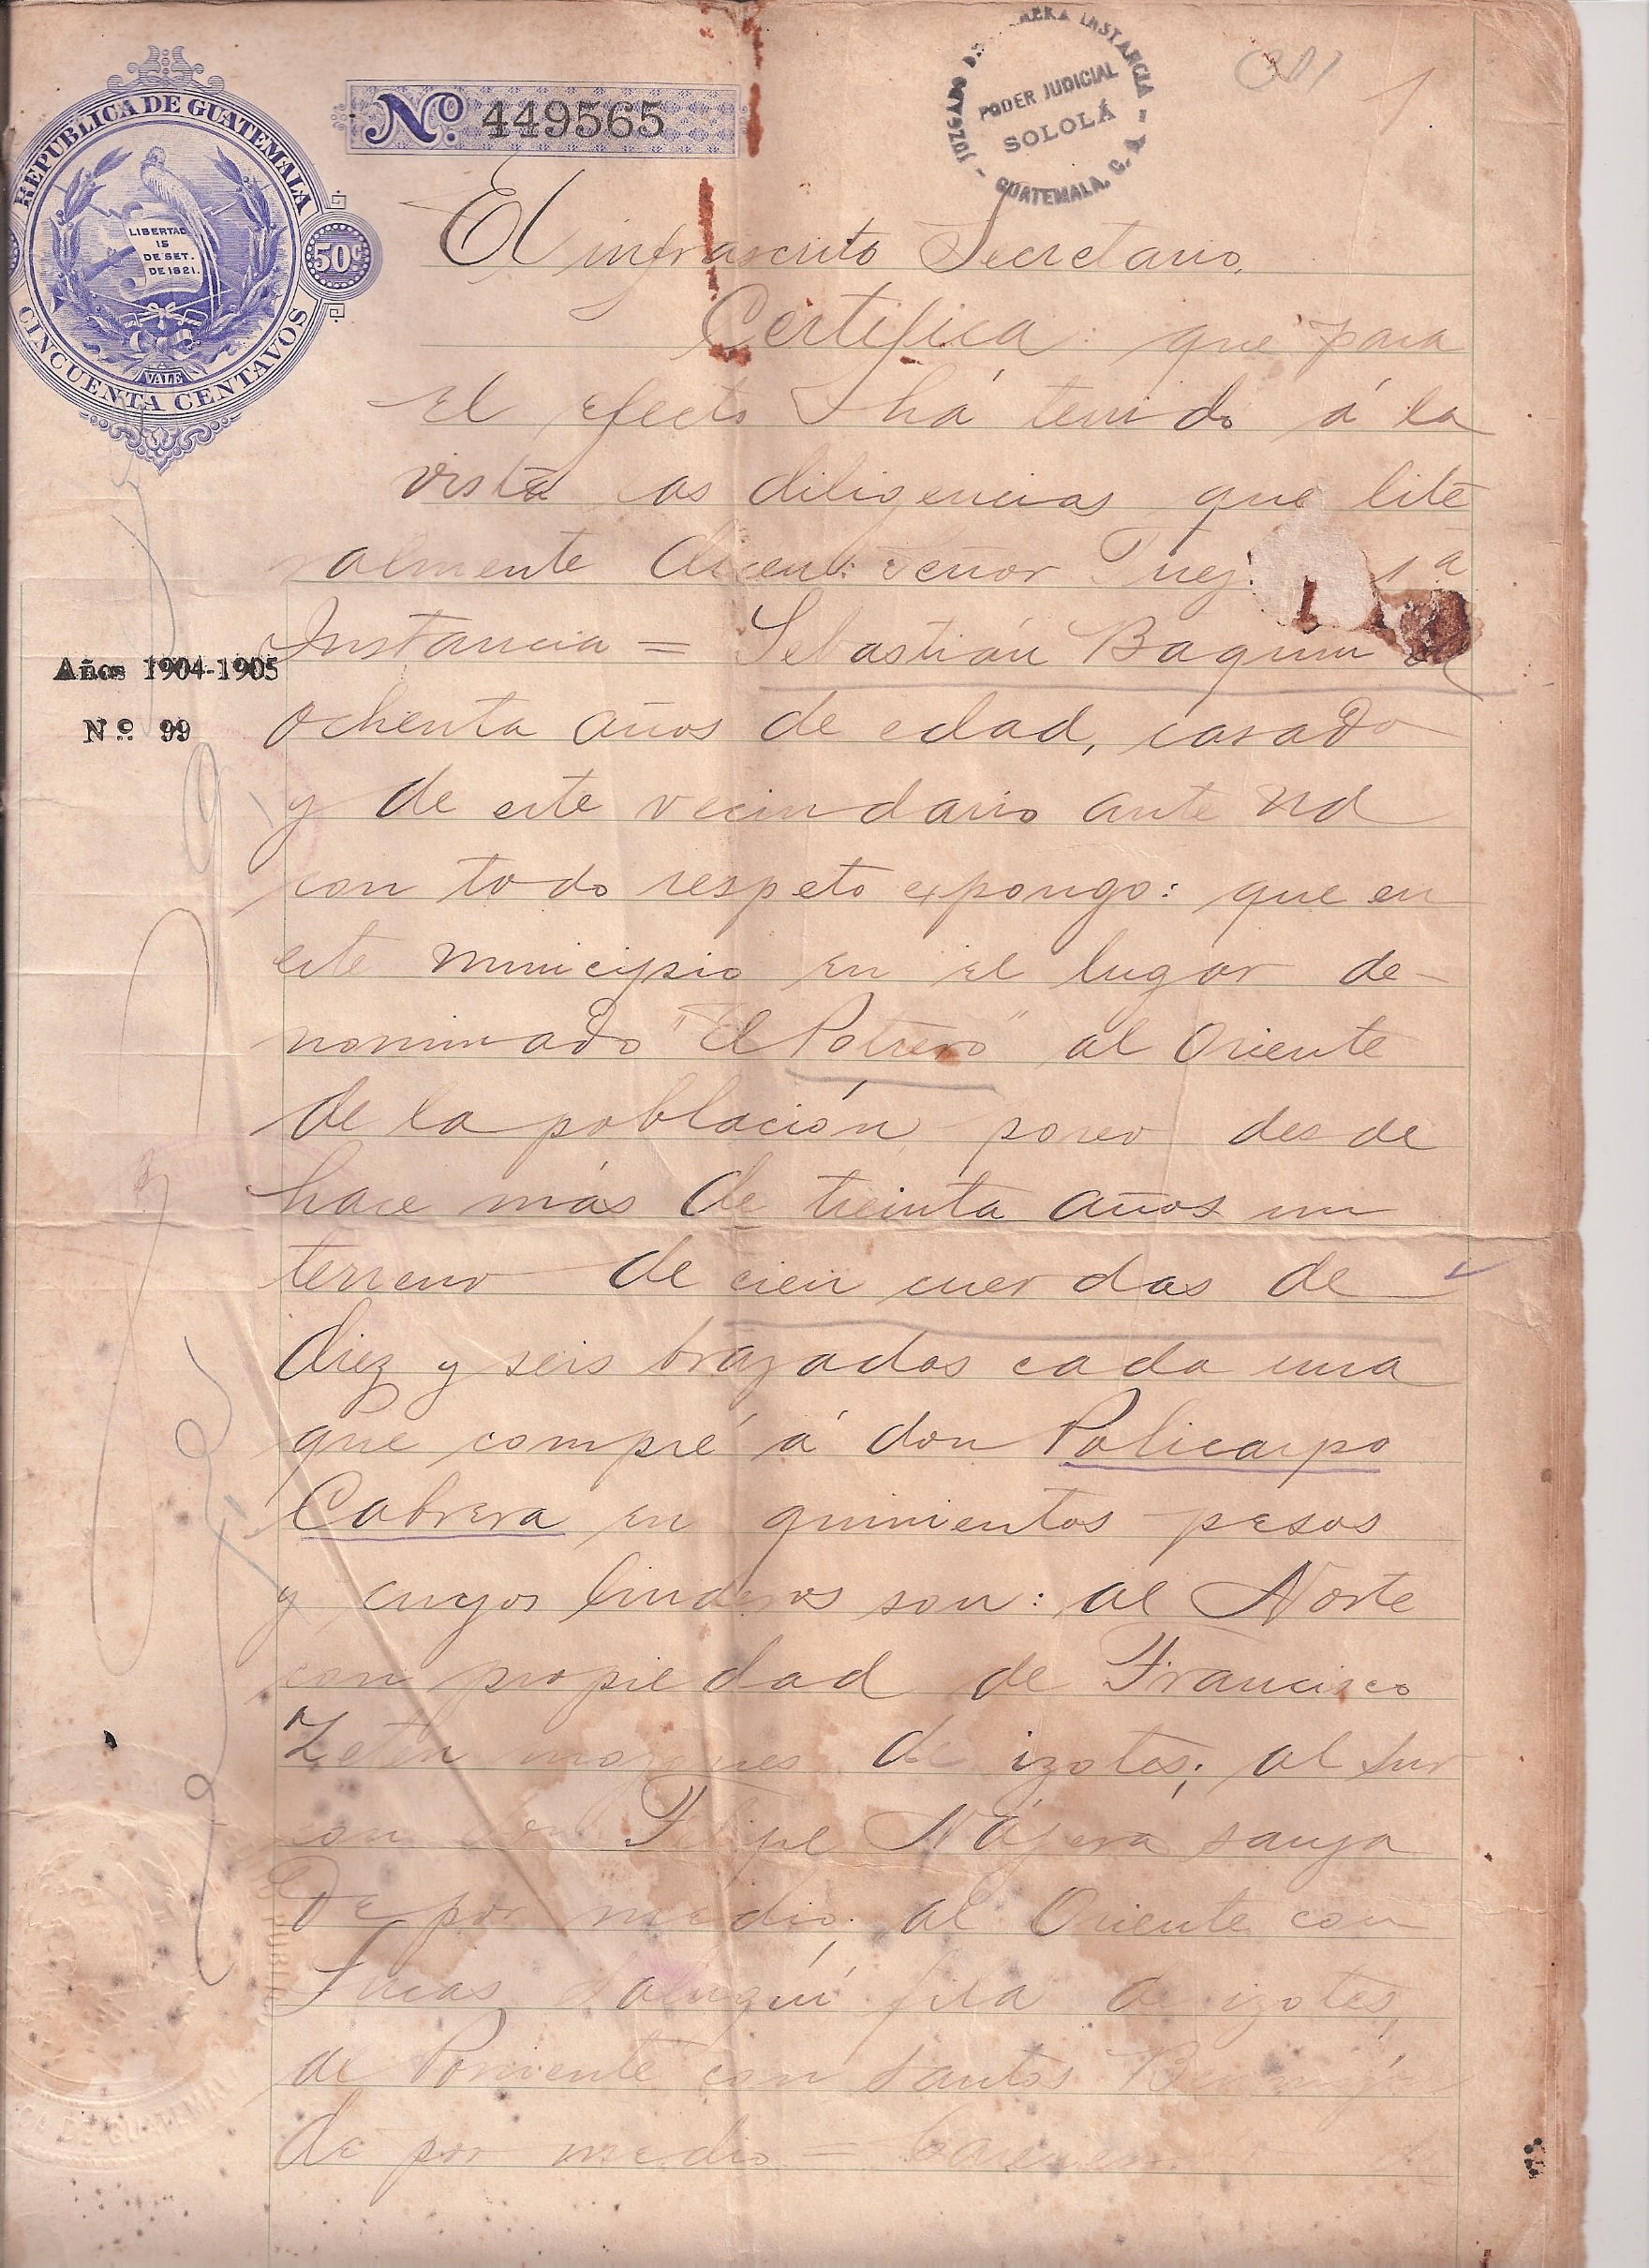 REPUBLICA DE GUATEMALA
LIBERTAD
15
DE SET.
DE 1821.
50c
VALE
CINCUENTA CENTAVOS
No 449565
JUZGADO DE PRIMERA INSTANCIA
PODER JUDICIAL
SOLOLÁ
GUATEMALA, C. A.
1
El infrascrito Secretario,
Certifica: que para
el efecto há tenido á la
vista las diligencias que lite
ralmente dicen: Señor Juez 1ª
Instancia = Sebastián Baquin de
Años 1904-1905
ochenta años de edad, casado
No. 99
y de este vecindario ante Ud
con todo respeto expongo: que en
este municipio en el lugar de-
nominado "El Potrero" al Oriente
de la población, poseo desde
hace más de treinta años un
terreno de cien cuerdas de
diez y seis brazadas cada una
que compré á don Policarpo
Cabrera en quinientos pesos
y cuyos linderos son: al Norte
con propiedad de Francisco
Zetín mojones de izotes; al Sur
con don Felipe Nájera sanja
de por medio; al Oriente con
Lucas fila de izotes,
al Poniente con Santos
de por medio =
DE GUATEMALA